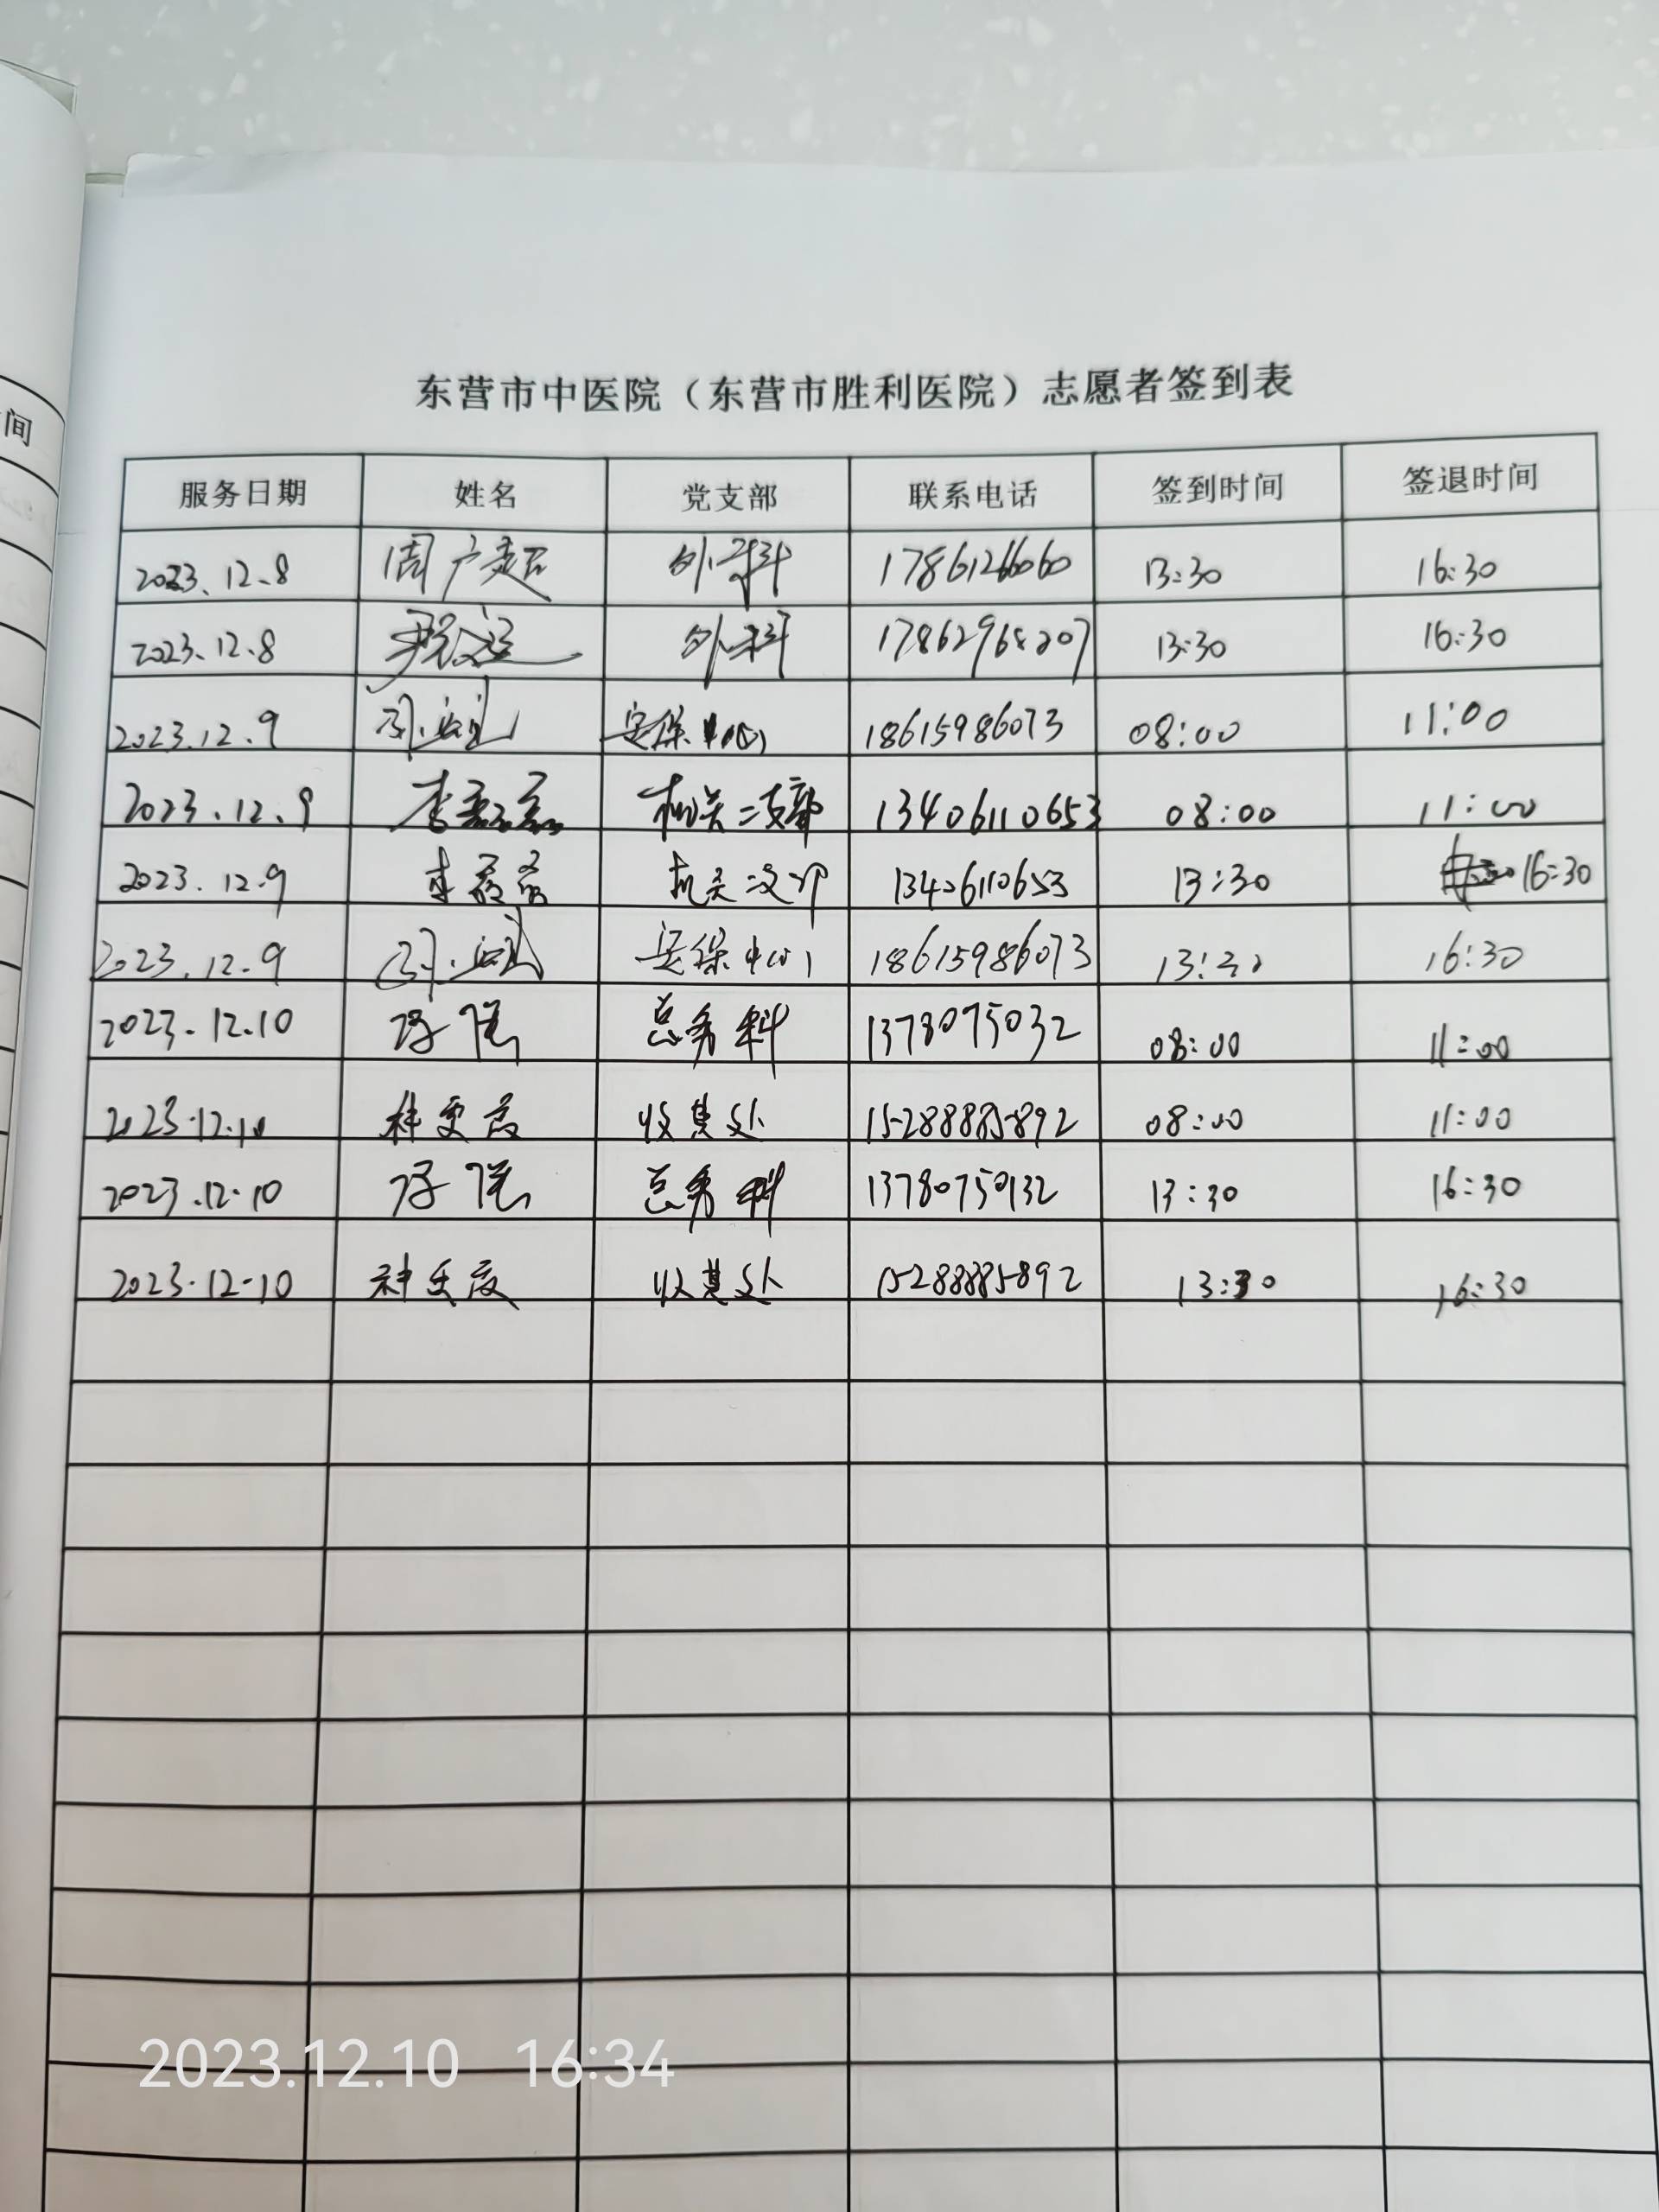 间
东营市中医院（东营市胜利医院）志愿者签到表
服务日期 姓名 党支部 联系电话 签到时间 签退时间
2023.12.8 周广超 外科 17861266060 13:30 16:30
2023.12.8 外科 13:30 16:30
2023.12.9 18615986073 08:00 11:00
2023.12.9 李 机关二支部 13406110653 08:00 11:00
2023.12.9 李 机关二支部 13406110653 13:30 16:30
2023.12.9 18615986073 13:30 16:30
2023.12.10 总务科 08:00 11:00
2023.12.10 收费处 15288885892 08:00 11:00
2023.12.10 总务科 13:30 16:30
2023.12.10 收费处 15288885892 13:30 16:30
2023.12.10 16:34